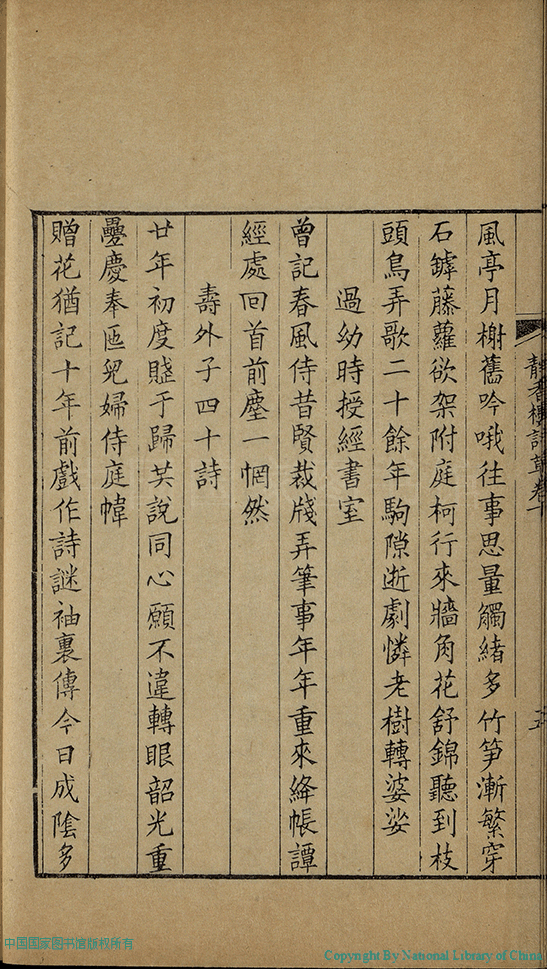 靜香樓詩草卷十
五
風亭月榭舊吟哦往事思量觸緒多竹笋漸繁穿
石罅藤蘿欲架附庭柯行來牆角花舒錦聽到枝
頭鳥弄歌二十餘年駒隙逝劇憐老樹轉婆娑
過幼時授經書室
曾記春風侍昔賢裁牋弄筆事年年重來絳帳譚
經處回首前塵一惘然
壽外子四十詩
廿年初度賦于歸共說同心願不違轉眼韶光重
疊慶奉匜兒婦侍庭幃
贈花猶記十年前戲作詩謎袖裏傳今日成陰多
中国国家图书馆版权所有
Copyright By National Library of China